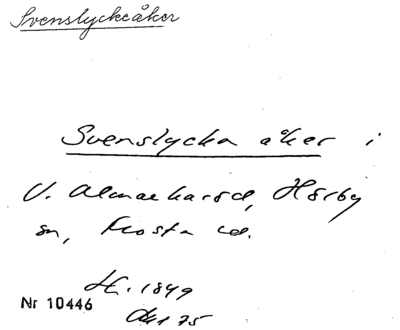 Svenslyckeåker
Svenslycka åker i
V. Almaharad, Hörby
sn, Frosta hd.
H. 1849
Nr 10446
Akt 75